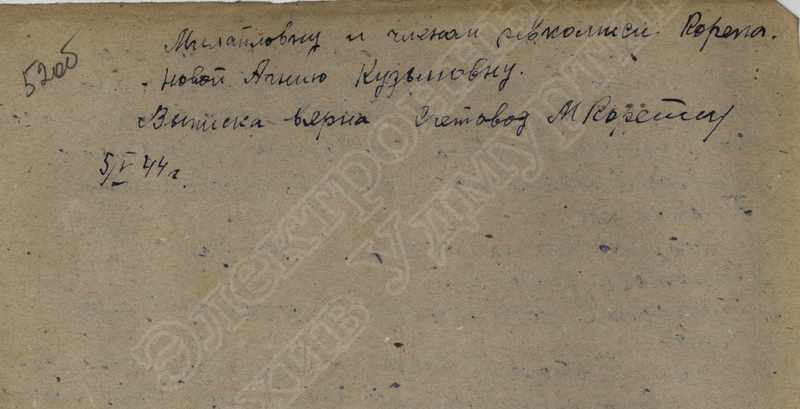 52об
Михайловну и членом ревкомиси. Корепа.
новой Агнию Кузьмовну.
Выписка верна Счетовод МКорепа
5/V 44 г.
Электронный
архив Удмуртии